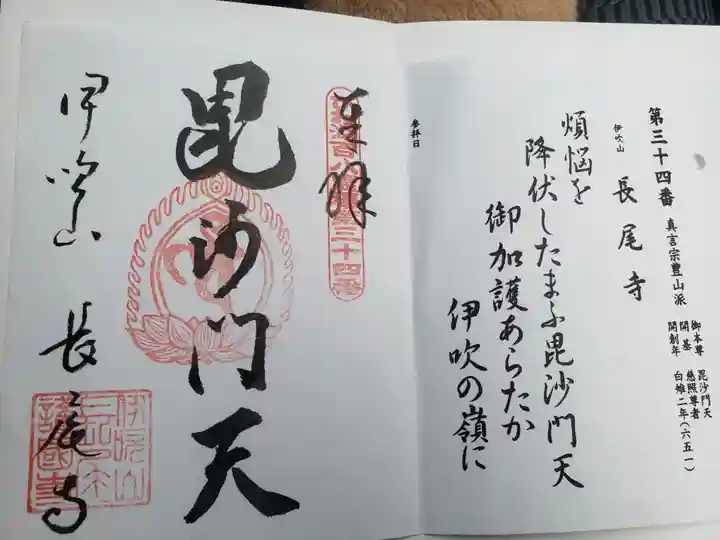 第三十四番 真言宗豊山派
伊吹山
長尾寺
御本尊 毘沙門天
開基 慈照尊者
開創年 白雉二年(六五一)
煩悩を
降伏したまふ毘沙門天
御加護あらたか
伊吹の嶺に
参拝日
奉拝
第三十四番
毘沙門天
伊吹山 長尾寺